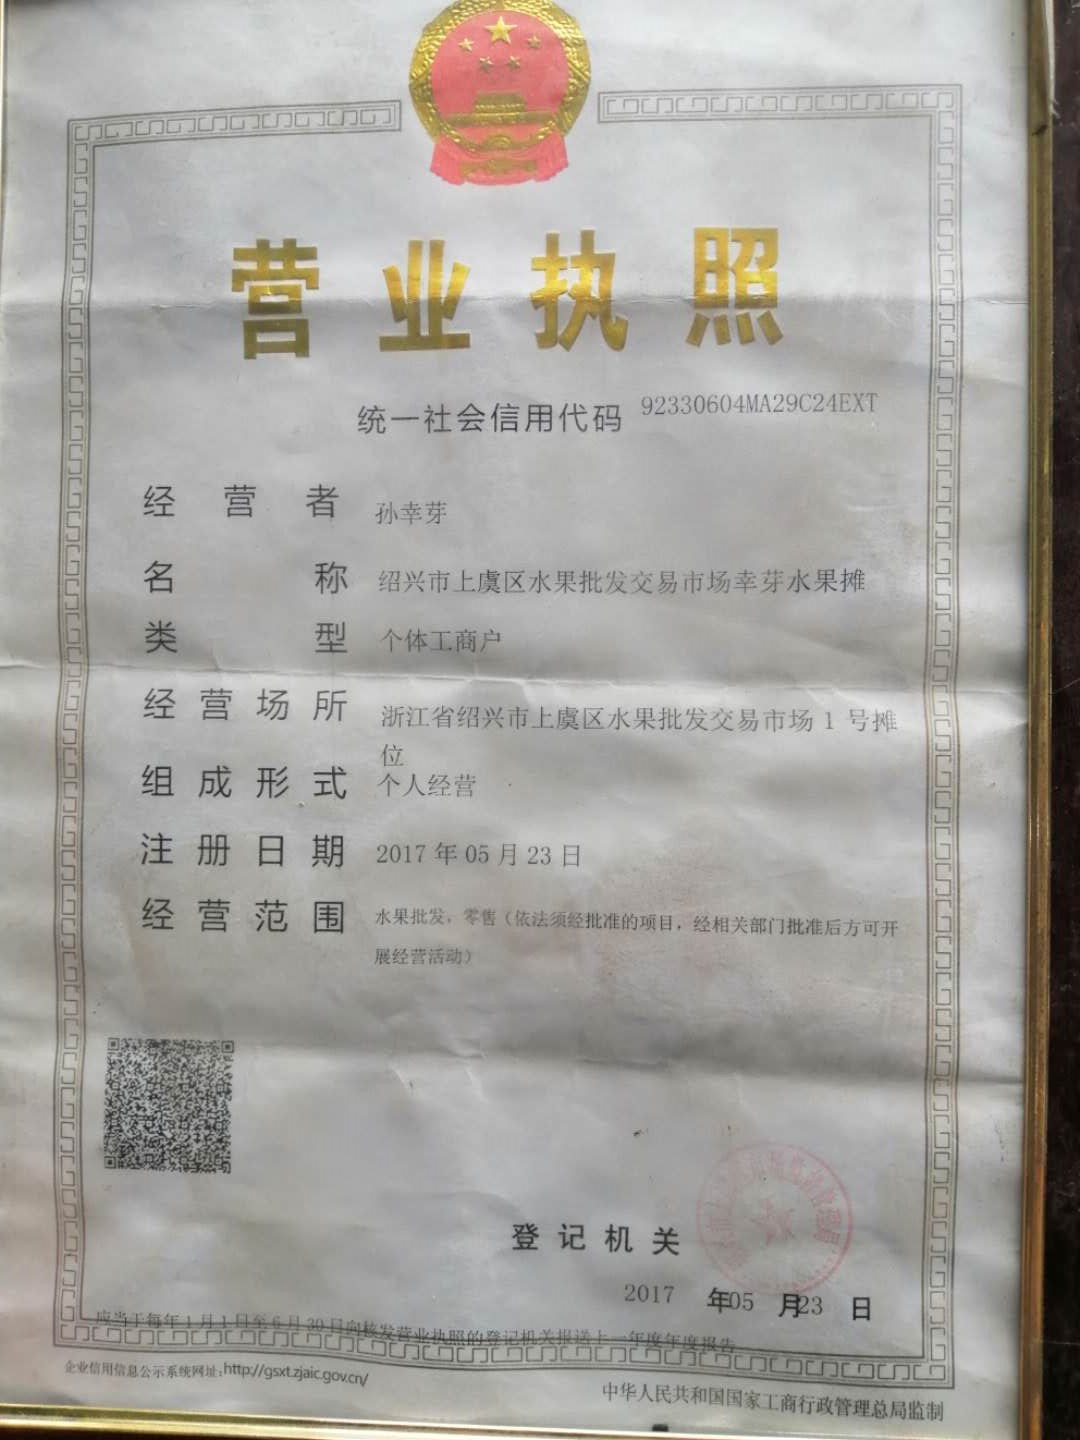 营业执照
统一社会信用代码 92330604MA29C24EXT
经营者 孙幸芽
名称 绍兴市上虞区水果批发交易市场幸芽水果摊
类型 个体工商户
经营场所 浙江省绍兴市上虞区水果批发交易市场1号摊
位
组成形式 个人经营
注册日期 2017年05月23日
经营范围 水果批发，零售（依法须经批准的项目，经相关部门批准后方可开
展经营活动）
登记机关
2017 年05 月23 日
应当于每年1月1日至6月30日向核发营业执照的登记机关报送上一年度年度报告
企业信用信息公示系统网址:http://gsxt.zjaic.gov.cn/
中华人民共和国国家工商行政管理总局监制